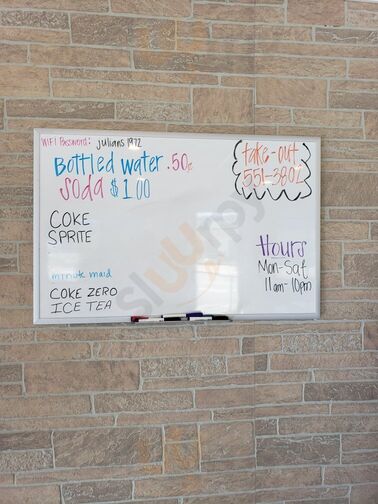 WIFI Password: julians1972
Bottled water .50¢
Soda $1.00
COKE
SPRITE
minute maid
COKE ZERO
ICE TEA
take-out
551-3802
Hours
Mon-Sat
11am-10pm
sluurpy